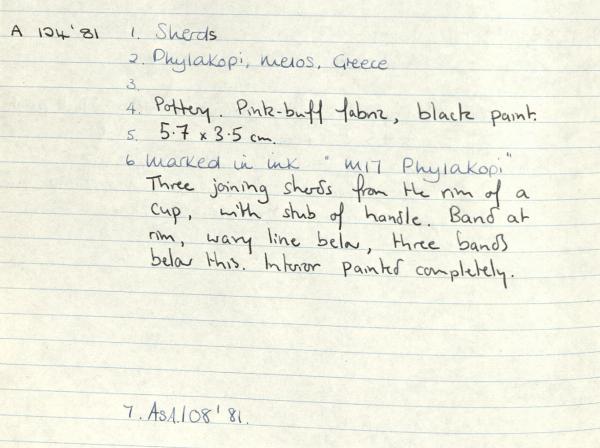 A 124'81 1. Sherds
2. Phylakopi, Melos, Greece
3.
4. Pottery. Pink-buff fabric, black paint.
5. 5.7 x 3.5 cm.
6 Marked in ink "M17 Phylakopi"
Three joining sherds from the rim of a
cup, with stub of handle. Band at
rim, wavy line below, three bands
below this. Interior painted completely.
7. AS1.108'81.